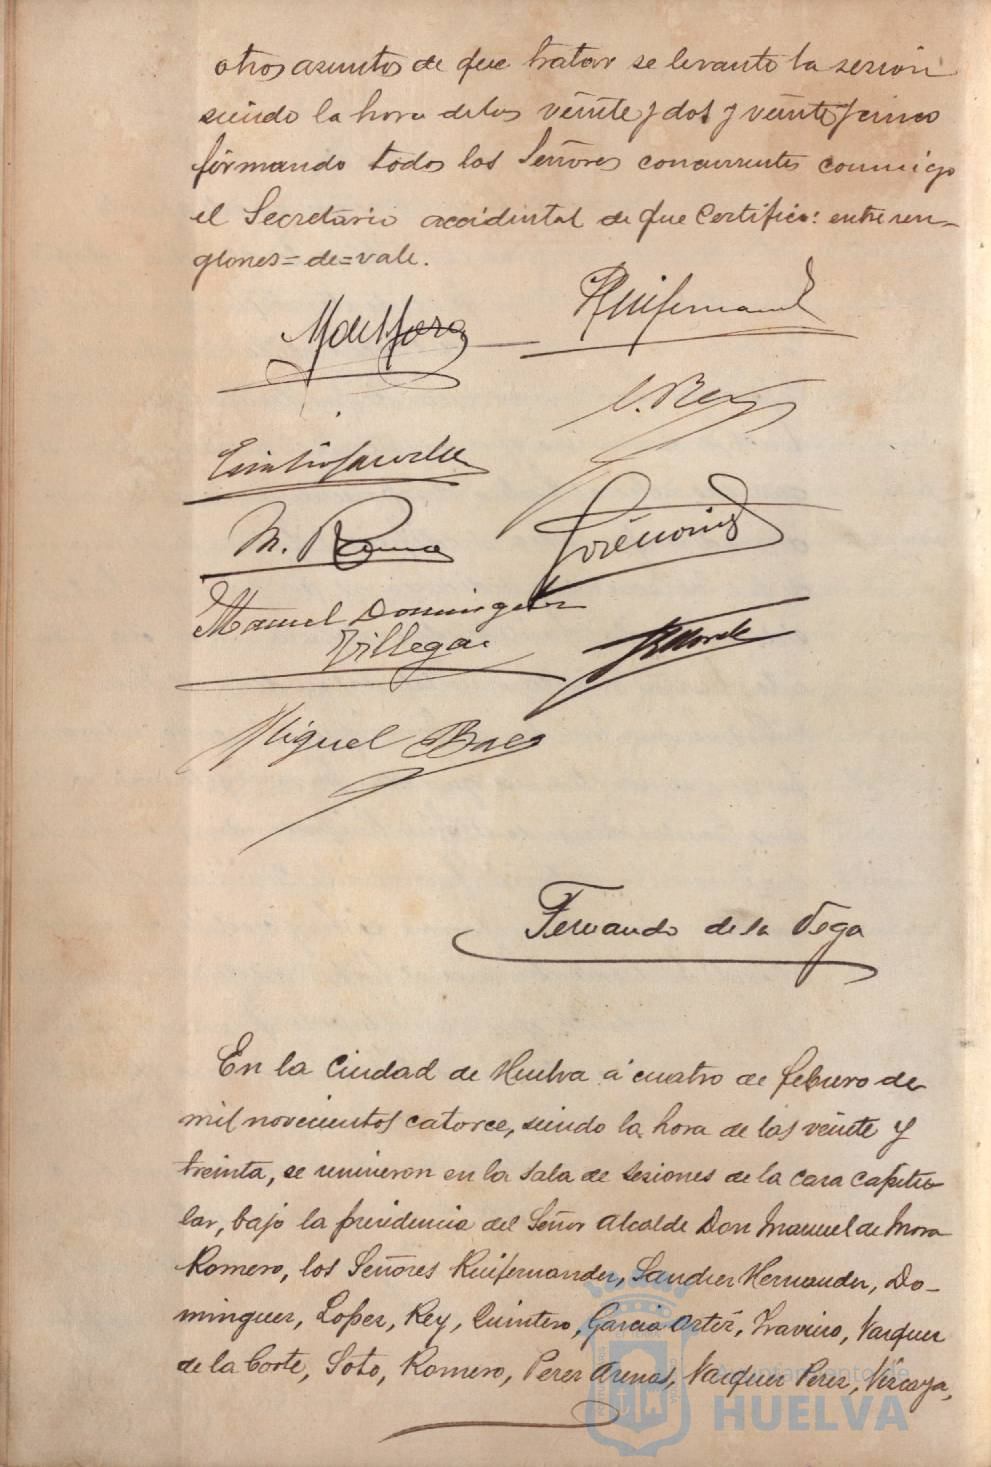 otros asuntos de que tratar se levanto la sesion
siendo la hora de las veinte y dos y veinte y cinco
firmando todos los Señores concurrentes conmigo
el Secretario accidental de que Certifico: entre ren-
glones=de=vale.
M de Mora
Ruifernand
V. Rey
M. Rom
Manuel Domingue
Villegas
Miguel Baez
Fernando de la Vega
En la Ciudad de Huelva á cuatro de febrero de
mil novecientos catorce, siendo la hora de las veinte y
treinta, se reunieron en la sala de sesiones de la casa capitu-
lar, bajo la presidencia del Señor Alcalde Don Manuel de Mora
Romero, los Señores Ruifernandez, Sanchez Hernandez, Do-
minguez, Lopez, Rey, Quintero, Garcia Ortiz, Travieso, Vazquez
de la Corte, Soto, Romero, Perez Arenas, Vazquez Perez, Vizcaya,
Ayuntamiento de
HUELVA